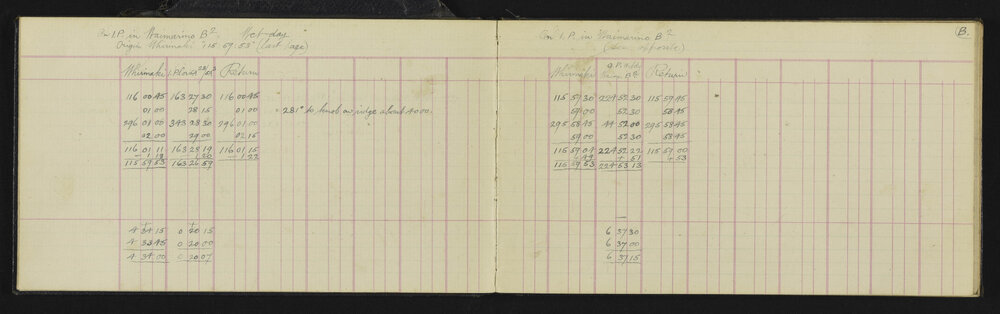 On I.P. in Waimarino B² Wet day
Origin Whirinaki 115 59 53 (last page)
Whirinaki Return
116 00 45 163 27 30 116 00 45
01 00 28 15 01 00
281° to knob on ridge about 40.00.
296 01 00 343 28 30 296 01 00
02 00 29 00 02 15
116 01 11 163 28 19 116 01 15
- 1 18 - 1 20 - 1 22
115 59 53 163 26 59
4 34 15 0 20 15
4 33 45 0 20 00
4 34 00 0 20 07
B.
On I.P. in Waimarino B²
(see opposite)
Whirinaki Return
115 59 30 224 52 30 115 59 45
59 00 52 30 58 45
295 58 45 44 52 00 295 58 45
59 00 52 30 58 45
115 59 04 224 52 22 115 59 00
+ 49 + 51 + 53
115 59 53 224 53 13
6 37 30
6 37 00
6 37 15